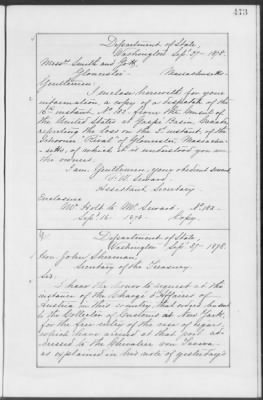 473
Department of State,
Washington Sept. 27th 1878.
Messrs. Smith and Gott,
Gloucester, Massachusetts.
Gentlemen:
I enclose herewith for your
information, a copy of a despatch of the
16th instant, No. 102, from the Consul of
the United States at Gaspé Basin, Canada,
reporting the loss on the 5th instant, of the
Schooner "Rival" of Gloucester, Massachu-
setts, of which it is understood you are
the owners.
I am, Gentlemen, your obedient servant
F. W. Seward,
Assistant Secretary.
Enclosure
Mr. Holt to Mr. Seward, No. 102
Sept. 16 1878. Copy.
Department of State,
Washington Sept. 27th 1878.
Hon. John Sherman,
Secretary of the Treasury.
Sir:
I have the honor to request at the
instance of the Chargé d'Affaires of
Austria in this country, that orders be sent
to the Collector of Customs at New York,
for the free entry of the case of cigars,
which have arrived at that port ad-
dressed to the Chevalier von
as explained in his note of yesterday's